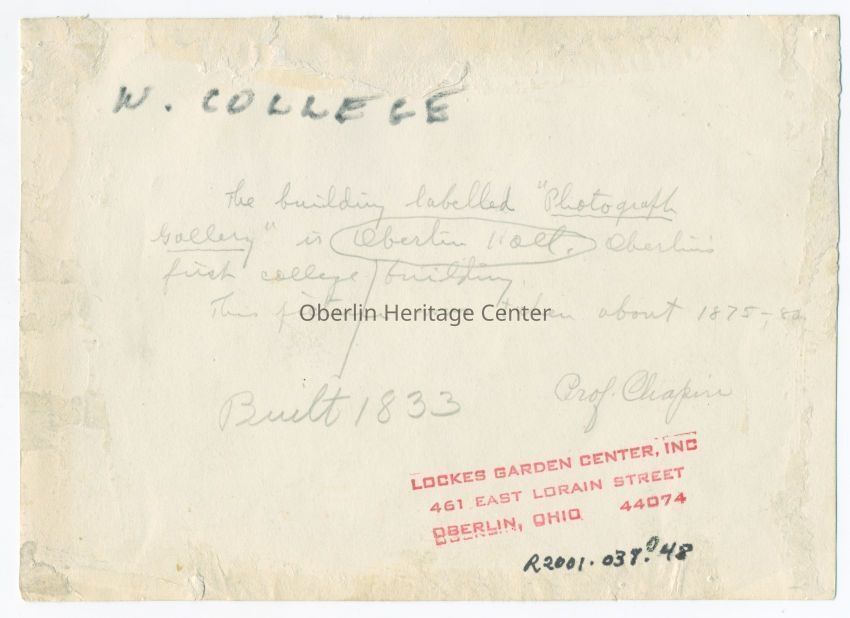 W. COLLEGE
The building labelled "Photograph
Gallery" is Oberlin Hall. Oberlin's
first college building.
This taken about 1875-80
Oberlin Heritage Center
Built 1833
Prof. Chapin
LOCKES GARDEN CENTER, INC
461 EAST LORAIN STREET
OBERLIN, OHIO 44074
R2001.037.048